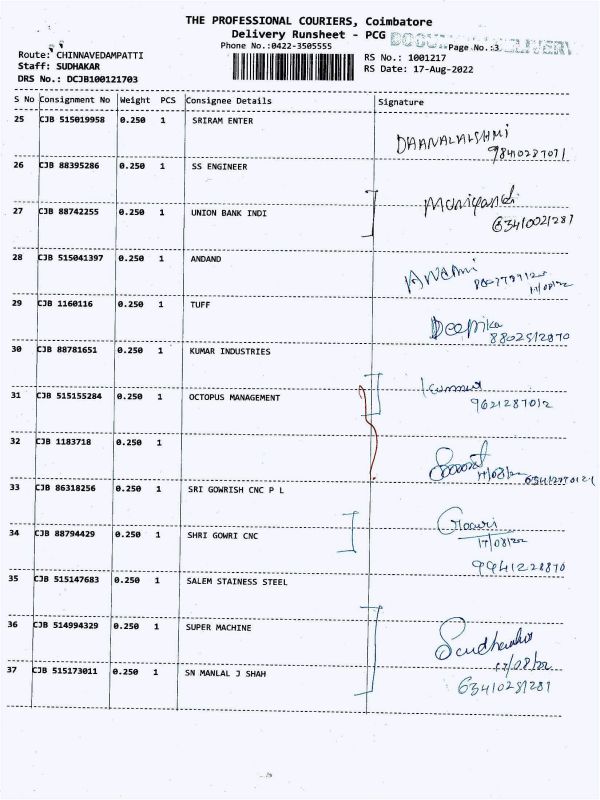 THE PROFESSIONAL COURIERS, Coimbatore
Delivery Runsheet - PCG
Phone No.:0422-3505555
Page No.:3
Route: CHINNAVEDAMPATTI
RS No.: 1001217
Staff: SUDHAKAR
RS Date: 17-Aug-2022
DRS No.: DCJB100121703
S No Consignment No Weight PCS Consignee Details Signature
25 CJB 515019958 0.250 1 SRIRAM ENTER
26 CJB 88395286 0.250 1 SS ENGINEER
27 CJB 88742255 0.250 1 UNION BANK INDI
28 CJB 515041397 0.250 1 ANDAND
17/08/22
29 CJB 1160116 0.250 1 TUFF
Deepika
30 CJB 88781651 0.250 1 KUMAR INDUSTRIES
31 CJB 515155284 0.250 1 OCTOPUS MANAGEMENT
9621287012
32 CJB 1183718 0.250 1
17/08/22
33 CJB 86318256 0.250 1 SRI GOWRISH CNC P L
34 CJB 88794429 0.250 1 SHRI GOWRI CNC
Gowri
17/08/22
9941228870
35 CJB 515147683 0.250 1 SALEM STAINESS STEEL
36 CJB 514994329 0.250 1 SUPER MACHINE
17/08/22
37 CJB 515173011 0.250 1 SN MANLAL J SHAH